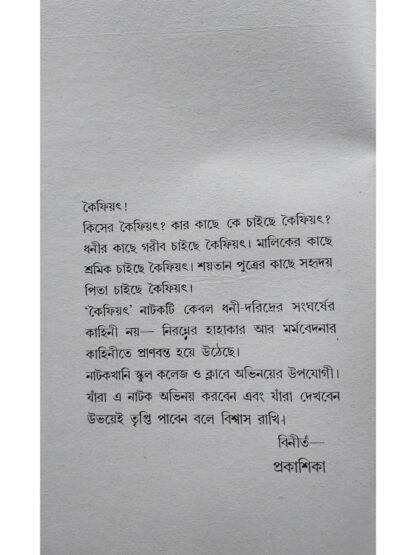 কৈফিয়ৎ!
কিসের কৈফিয়ৎ? কার কাছে কে চাইছে কৈফিয়ৎ?
ধনীর কাছে গরীব চাইছে কৈফিয়ৎ। মালিকের কাছে
শ্রমিক চাইছে কৈফিয়ৎ। শয়তান পুত্রের কাছে সহৃদয়
পিতা চাইছে কৈফিয়ৎ।
‘কৈফিয়ৎ’ নাটকটি কেবল ধনী-দরিদ্রের সংঘর্ষের
কাহিনী নয়— নিরন্নের হাহাকার আর মর্মবেদনার
কাহিনীতে প্রাণবন্ত হয়ে উঠেছে।
নাটকখানি স্কুল কলেজ ও ক্লাবে অভিনয়ের উপযোগী।
যাঁরা এ নাটক অভিনয় করবেন এবং যাঁরা দেখবেন
উভয়েই তৃপ্তি পাবেন বলে বিশ্বাস রাখি।
বিনীত—
প্রকাশিকা